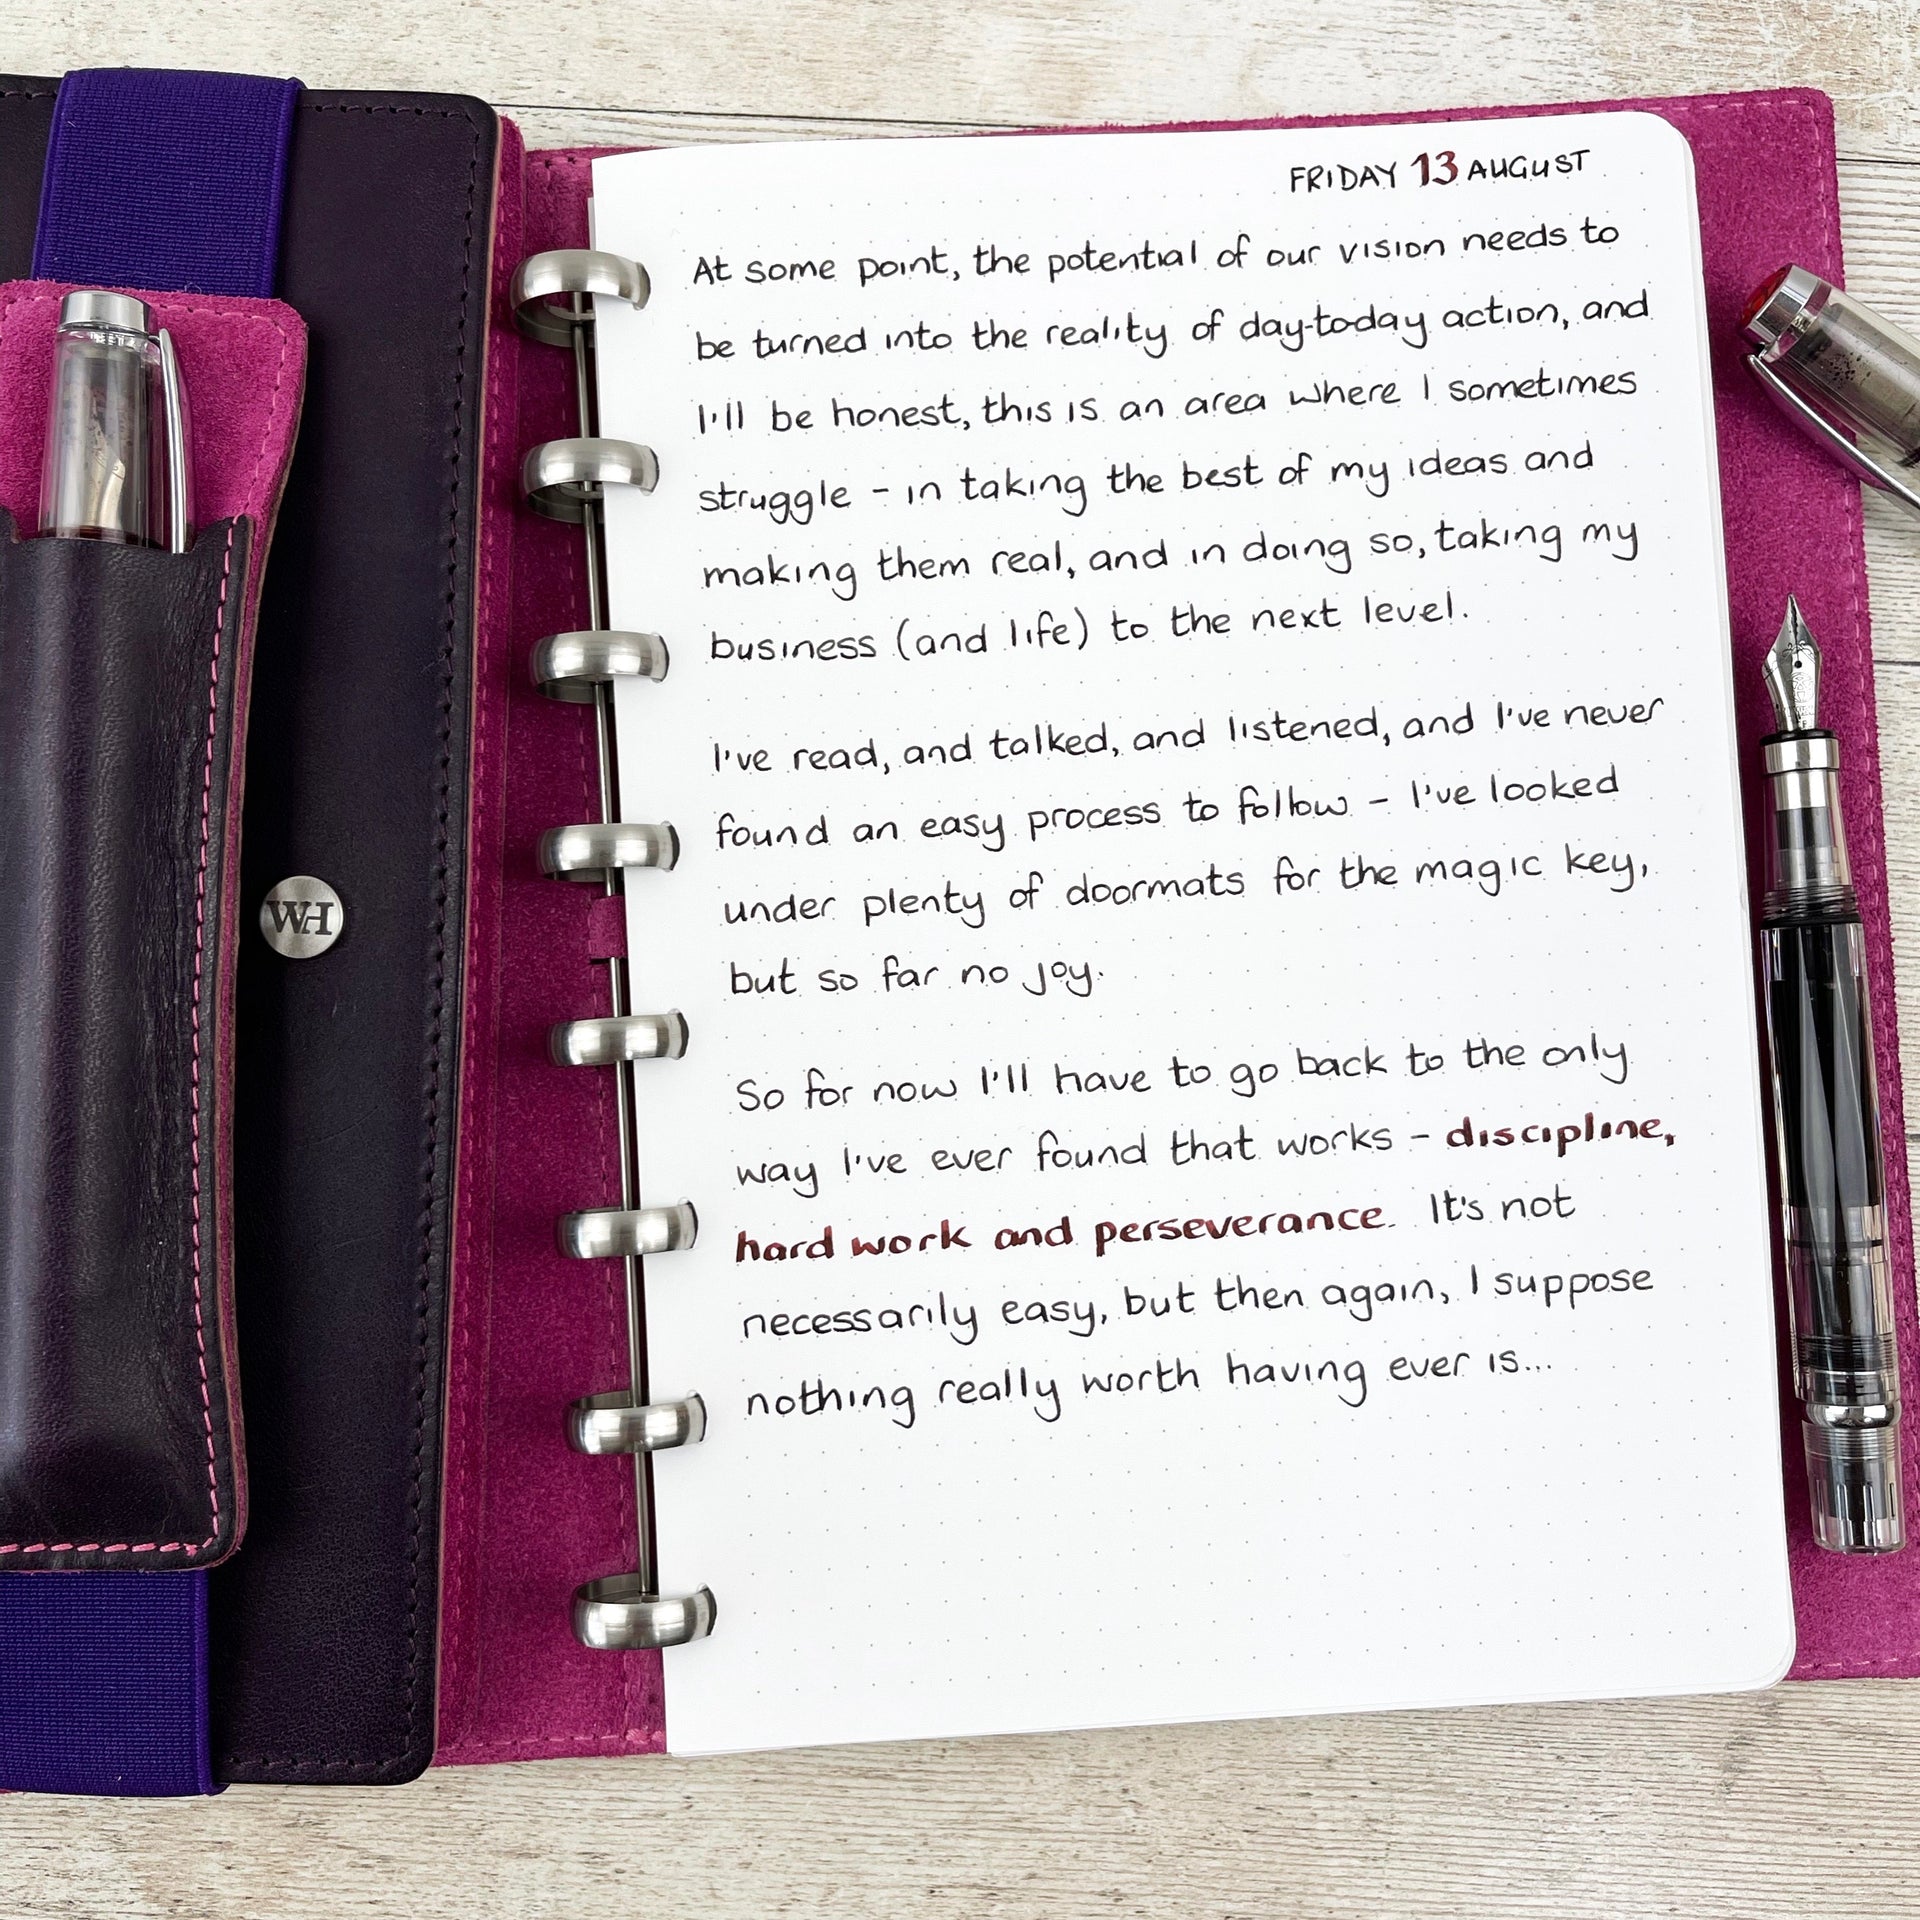 FRIDAY 13 AUGUST
At some point, the potential of our vision needs to
be turned into the reality of day-to-day action, and
I'll be honest, this is an area where I sometimes
struggle - in taking the best of my ideas and
making them real, and in doing so, taking my
business (and life) to the next level.
I've read, and talked, and listened, and I've never
found an easy process to follow - I've looked
under plenty of doormats for the magic key,
but so far no joy.
So for now I'll have to go back to the only
way I've ever found that works - discipline,
hard work and perseverance. It's not
necessarily easy, but then again, I suppose
nothing really worth having ever is...
WH